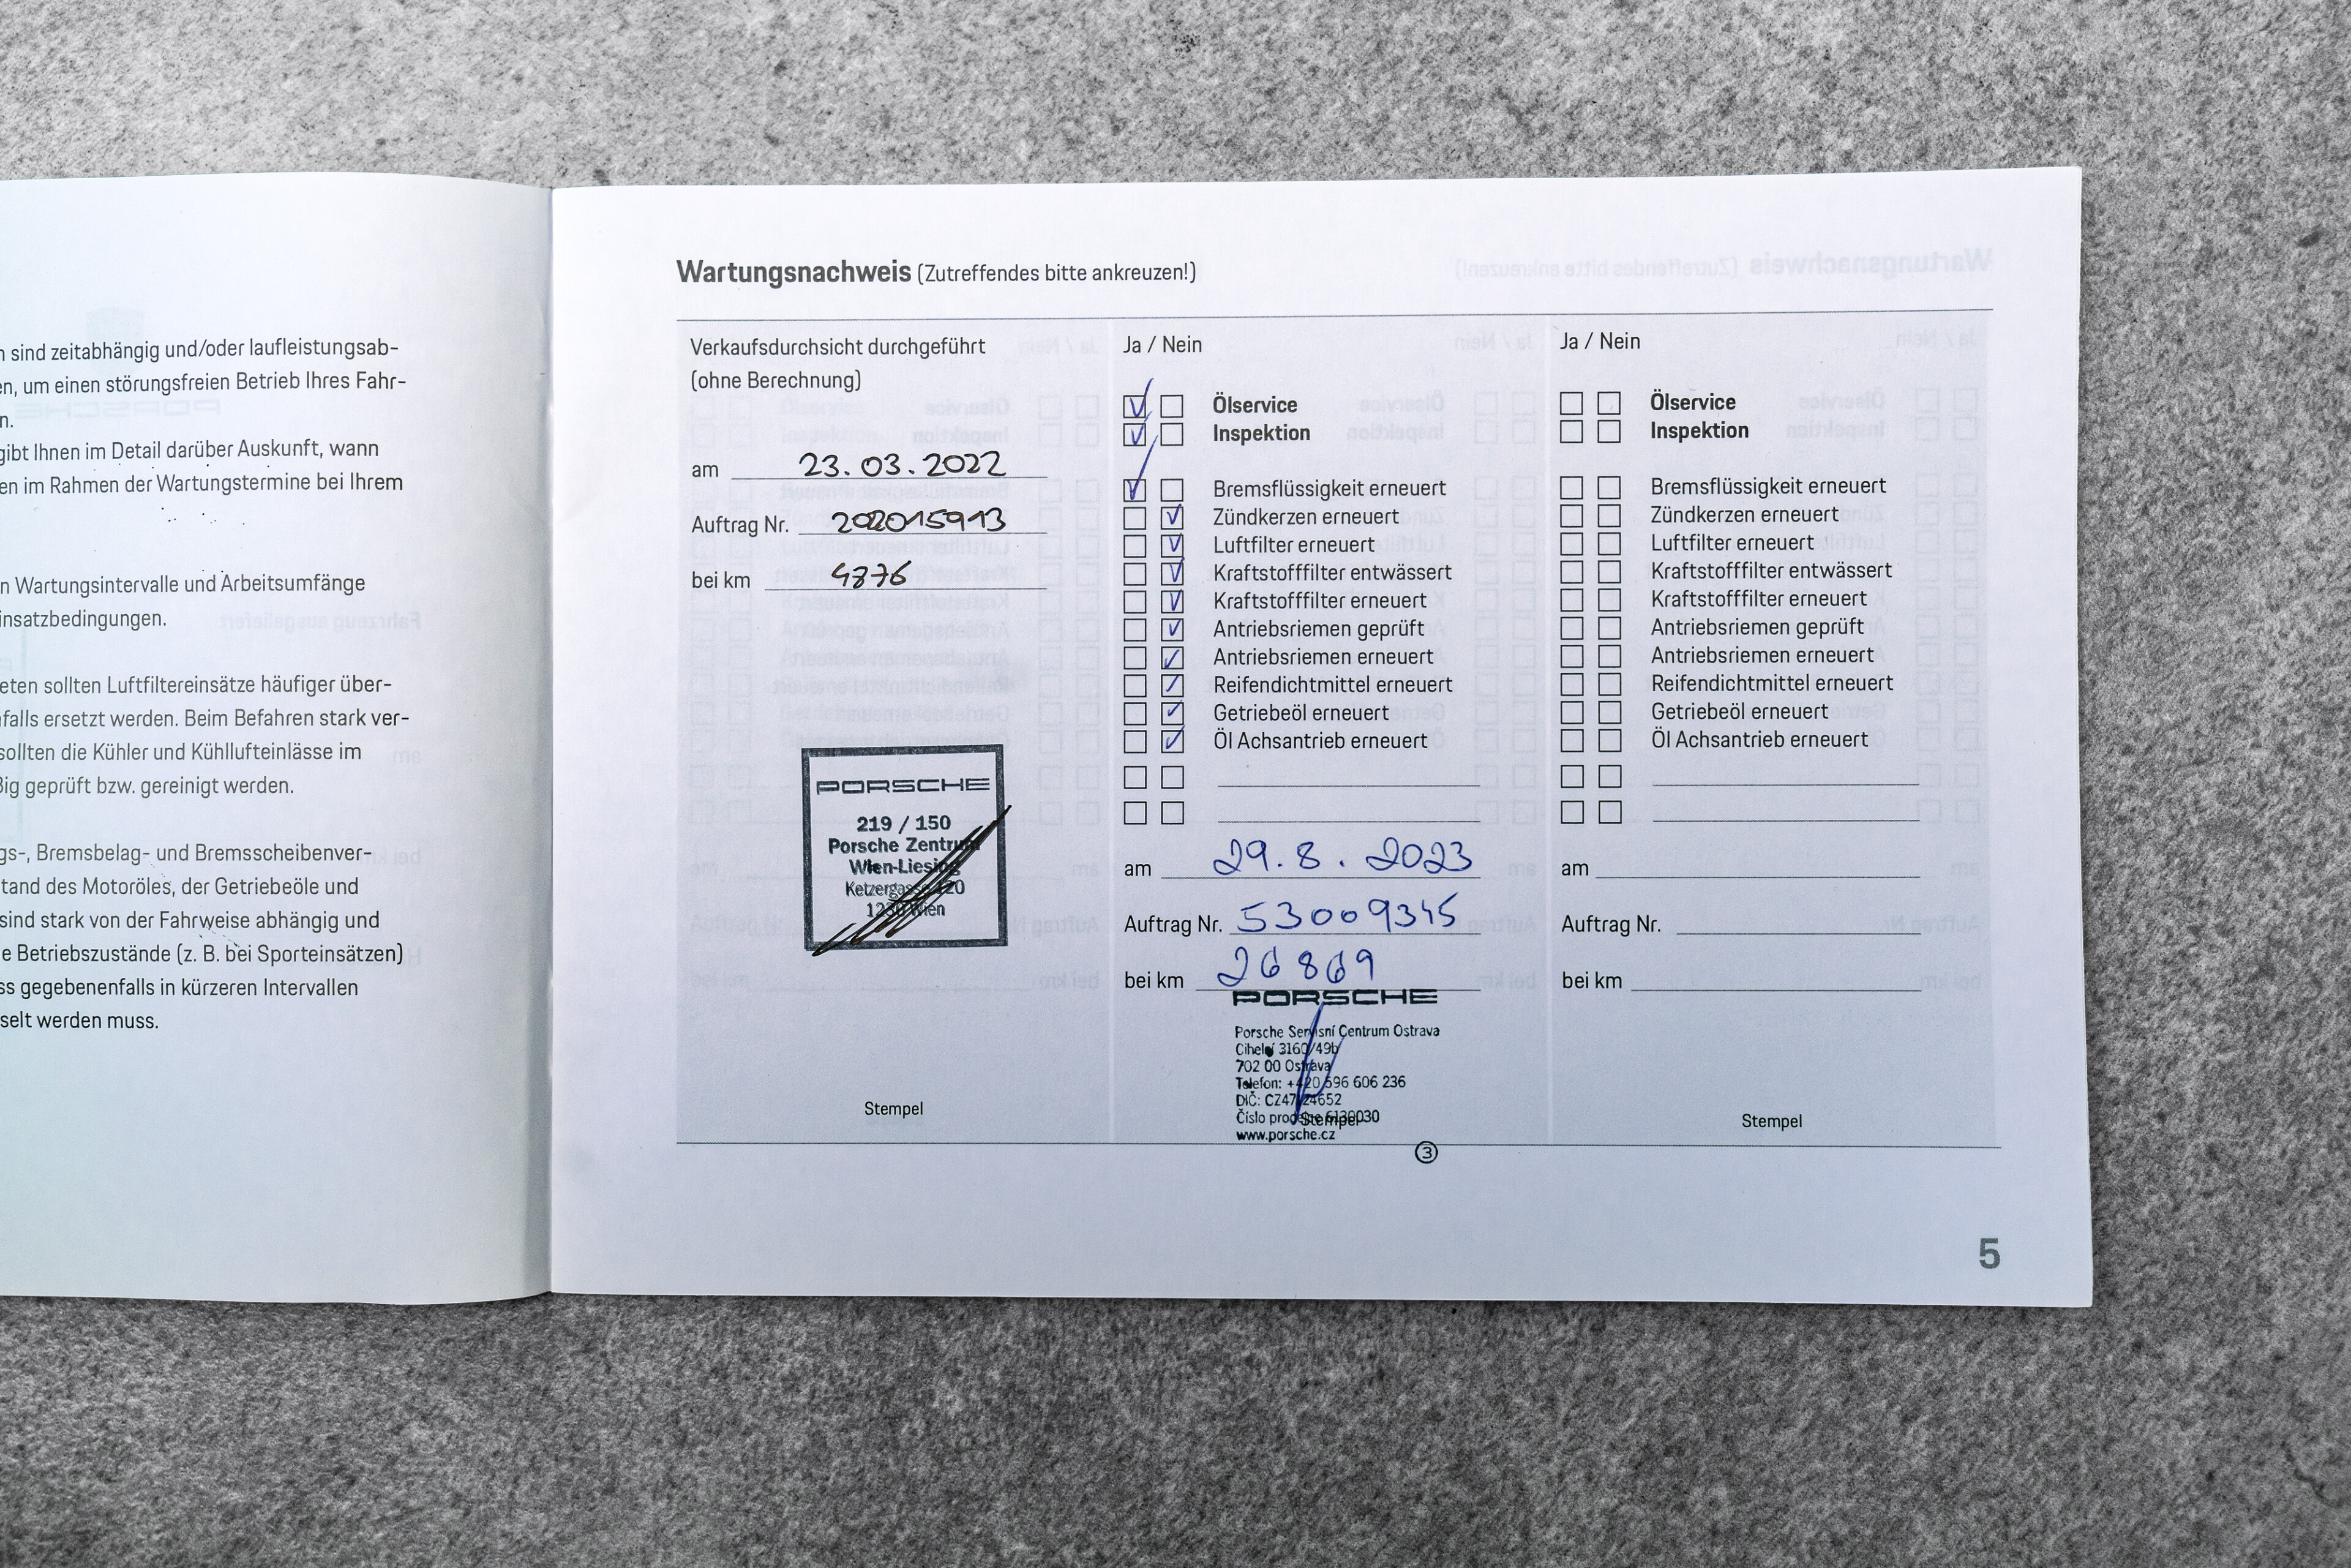 n sind zeitabhängig und/oder laufleistungsab-
en, um einen störungsfreien Betrieb Ihres Fahr-
n.
gibt Ihnen im Detail darüber Auskunft, wann
en im Rahmen der Wartungstermine bei Ihrem
n Wartungsintervalle und Arbeitsumfänge
insatzbedingungen.
eten sollten Luftfiltereinsätze häufiger über-
falls ersetzt werden. Beim Befahren stark ver-
sollten die Kühler und Kühllufteinlässe im
ßig geprüft bzw. gereinigt werden.
gs-, Bremsbelag- und Bremsscheibenver-
tand des Motoröles, der Getriebeöle und
sind stark von der Fahrweise abhängig und
e Betriebszustände (z. B. bei Sporteinsätzen)
ss gegebenenfalls in kürzeren Intervallen
selt werden muss.
Wartungsnachweis (Zutreffendes bitte ankreuzen!)
Verkaufsdurchsicht durchgeführt
(ohne Berechnung)
am 23.03.2022
Auftrag Nr. 202015913
bei km 4876
PORSCHE
219 / 150
Porsche Zentrum
Wien-Liesing
Ketzergasse 120
1230 Wien
Stempel
Ja / Nein
Ölservice
Inspektion
Bremsflüssigkeit erneuert
Zündkerzen erneuert
Luftfilter erneuert
Kraftstofffilter entwässert
Kraftstofffilter erneuert
Antriebsriemen geprüft
Antriebsriemen erneuert
Reifendichtmittel erneuert
Getriebeöl erneuert
Öl Achsantrieb erneuert
am 29.8.2023
Auftrag Nr. 53009345
bei km 26869
PORSCHE
Porsche Servisní Centrum Ostrava
Cihelní 3160/49b
702 00 Ostrava
Telefon: +420 596 606 236
DIČ:
Číslo 6130030
Stempel
www.porsche.cz
3
Ja / Nein
Ölservice
Inspektion
Bremsflüssigkeit erneuert
Zündkerzen erneuert
Luftfilter erneuert
Kraftstofffilter entwässert
Kraftstofffilter erneuert
Antriebsriemen geprüft
Antriebsriemen erneuert
Reifendichtmittel erneuert
Getriebeöl erneuert
Öl Achsantrieb erneuert
am
Auftrag Nr.
bei km
Stempel
5